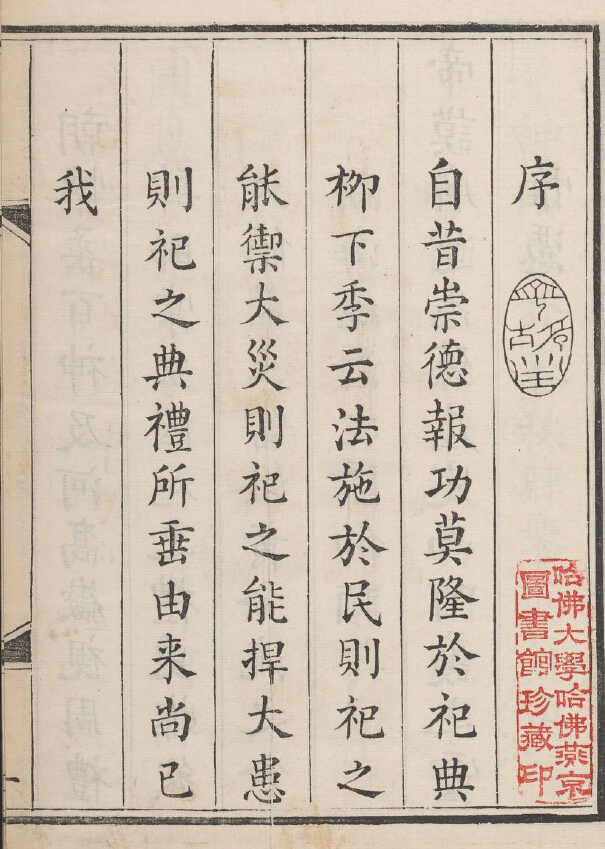 序
自昔崇德報功莫隆於祀典
栁下季云法施於民則祀之
能禦大災則祀之能捍大患
則祀之典禮所垂由来尚已
我
哈佛大學哈佛燕京
圖書館珍藏印